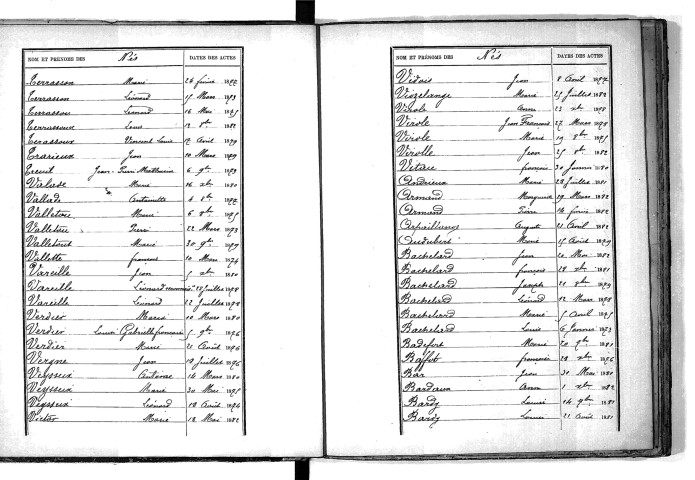 NOM ET PRÉNOMS DES Nés DATES DES ACTES
Terrasson Marie 24 1872
Terrasson Léonard 15 Mars 1873
Terrasson Léonard 16 Mai 1875
Terrassoux Louis 13 8bre 1882
Terrassoux Vincent Louis 17 Avril 1879
Trarieux Jean 10 Mars 1879
Treuil Jean Pierre Mathurin 6 9bre
Valade Marie 16 xbre 1880
Vallade Antoinette 4 8bre 1872
Valleterie Marie 6 8bre 1875
Valleterie Pierre 22 Mars 1873
Valletout Marie 30 9bre 1877
Vallette François 10 Mars 1874
Vareille Jean 5 xbre 1880
Vareille Léonard 28 Juillet 1878
Vareille Léonard 12 Juillet 1878
Verdier Marie 10 Mars 1880
Verdier Louise Gabrielle 5 9bre 1876
Verdier Marie 21 Août 1876
Vergne Jean 19 Juillet 1876
Veysseix Antoine 16 Mars 1880
Veysseix Marie 30 Mai 1875
Veysseix Léonard 18 Août 1874
Victor Marie 18 Mai 1882
NOM ET PRÉNOMS DES Nés DATES DES ACTES
Vidois Jean 8 Avril 1872
Viozelange Marie 25 Juillet 1882
Virole Anna 23 xbre 1878
Virole Jean François 27 Mars 1879
Virole Marie 19 8bre 1875
Virolle Jean 25 8bre 1882
Vitrac François 30 Janvier 1880
Andrieux Marie 28 Juillet 1881
Armand Marguerite 19 Mars 1882
Armand Pierre 14 1882
Arfeuillange August 21 Avril 1882
Audubert Marie 15 Août 1879
Bachelard Jean 20 Mai 1878
Bachelard François 28 xbre 1881
Bachelard Joseph 21 8bre 1879
Bachelard Léonard 12 Mars 1878
Bachelard Marie 5 Avril 1875
Bachelard Louis 6 Janvier 1873
Badefort Marie 20 9bre 1880
Baffet Françoise 29 xbre 1876
Bar Jean 30 Mai 1881
Bardaux Anna 1 xbre 1882
Bardy Louise 14 9bre 1881
Bardy Louise 21 Avril 1881